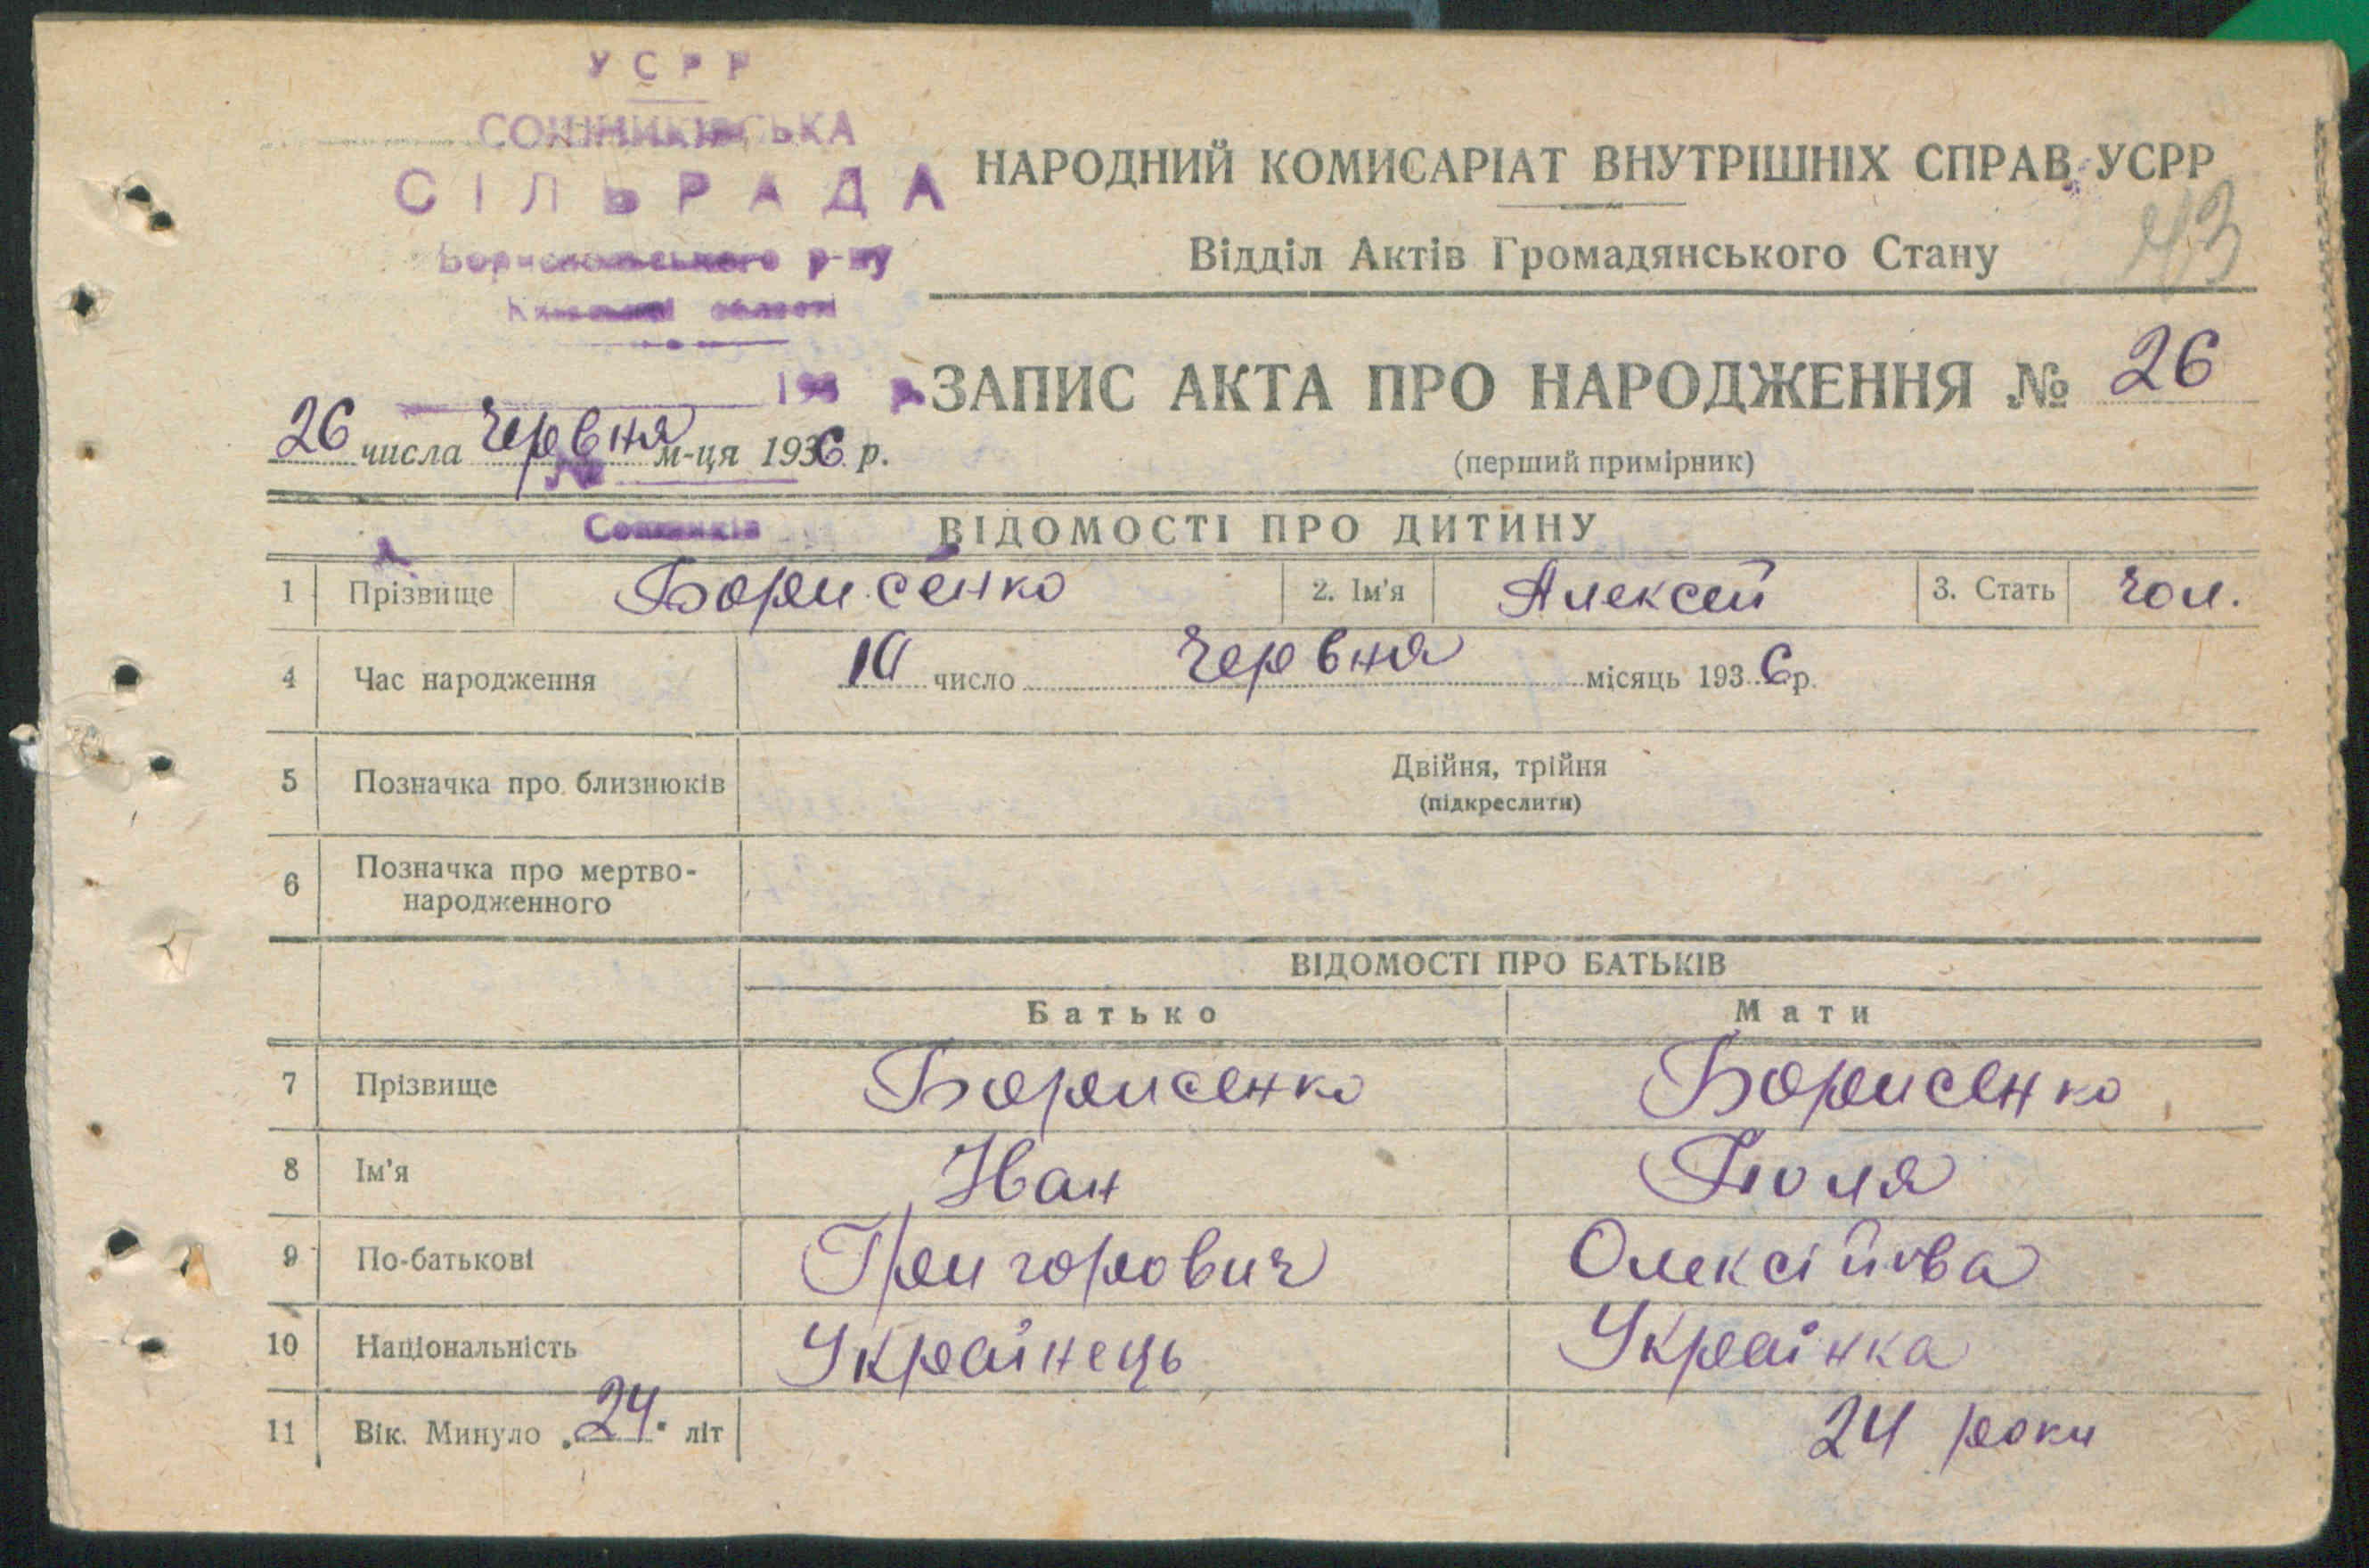 УСРР
СОШНИКІВСЬКА
СІЛЬРАДА
Бориспольського р-ну
Київської області
193 р.
НАРОДНИЙ КОМИСАРІАТ ВНУТРІШНІХ СПРАВ УСРР
43
Відділ Актів Громадянського Стану
ЗАПИС АКТА ПРО НАРОДЖЕННЯ № 26
26 числа Червня м-ця 1936 р.
(перший примірник)
№
Сошників
ВІДОМОСТІ ПРО ДИТИНУ
1 Прізвище Борисенко 2. Ім'я Алексей 3. Стать чол.
4 Час народження 10 число Червня місяць 1936 р.
5 Позначка про близнюків Двійня, трійня
(підкреслити)
6 Позначка про мертво-
народженного
ВІДОМОСТІ ПРО БАТЬКІВ
Батько Мати
7 Прізвище Борисенко Борисенко
8 Ім'я Іван Поля
9 По-батькові Григорович Олексійова
10 Національність Українець Українка
11 Вік. Минуло „24" літ 24 роки